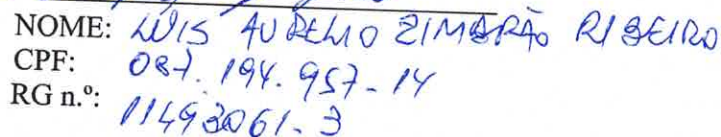 NOME: LUIS AURELIO ZIMBRÃO RIBEIRO
CPF: 087.194.957-14
RG n.º: 11493061-3